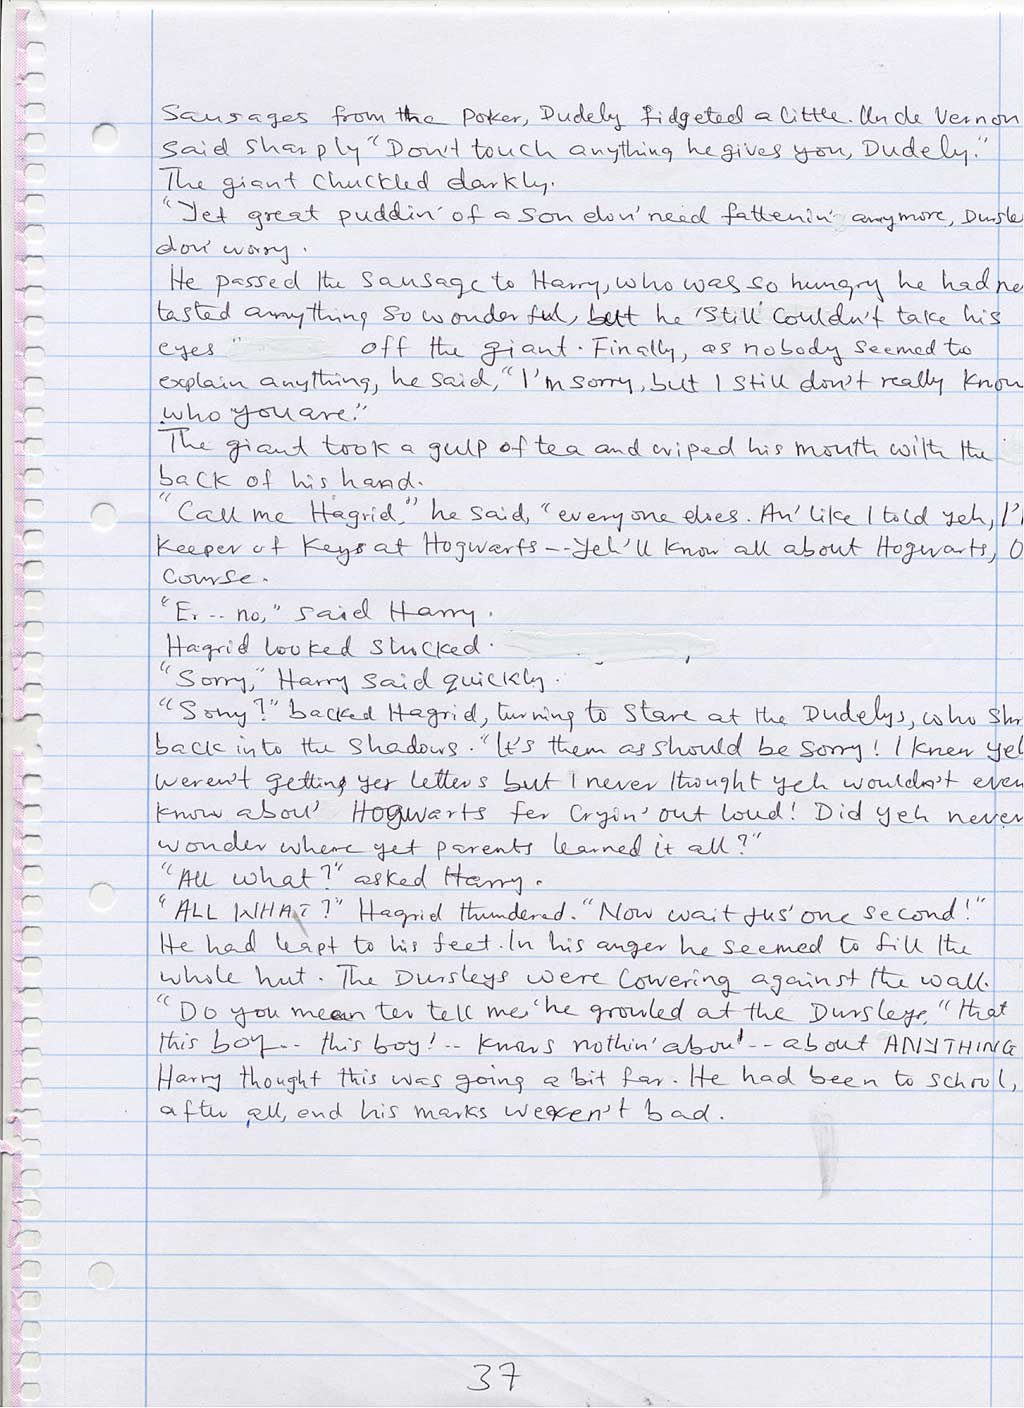 Sausages from the poker, Dudely fidgeted a little. Uncle Vernon
said sharply "Don't touch anything he gives you, Dudely."
The giant chuckled darkly.
"Yet great puddin' of a son don' need fattenin' anymore, Dursle
don' worry.
He passed the sausage to Harry, who was so hungry he had ne
tasted anything so wonderful, but he 'still' couldn't take his
eyes " off the giant. Finally, as nobody seemed to
explain anything, he said, "I'm sorry, but I still don't really know
who you are."
The giant took a gulp of tea and wiped his mouth with the
back of his hand.
"Call me Hagrid," he said, "everyone does. An' like I told yeh, I'
Keeper of Keys at Hogwarts -- Yeh'll know all about Hogwarts, O
course.
"Er -- no," said Harry.
Hagrid looked shocked.
"Sorry," Harry said quickly.
"Sony?" backed Hagrid, turning to stare at the Dudelys, who shr
back into the shadows. "It's them as should be sorry! I knew yeh
weren't getting yer letters but I never thought yeh wouldn't even
know abou' Hogwarts fer cryin' out loud! Did yeh never
wonder where yet parents learned it all?"
"All what?" asked Harry.
"ALL WHAT?" Hagrid thundered. "Now wait jus' one second!"
He had leapt to his feet. In his anger he seemed to fill the
whole hut. The Dursleys were cowering against the wall.
"Do you mean ter tell me" he growled at the Dursleys, "that
this boy -- this boy! -- knows nothin' abou' -- about ANYTHING
Harry thought this was going a bit far. He had been to school,
after all, and his marks weren't bad.
37